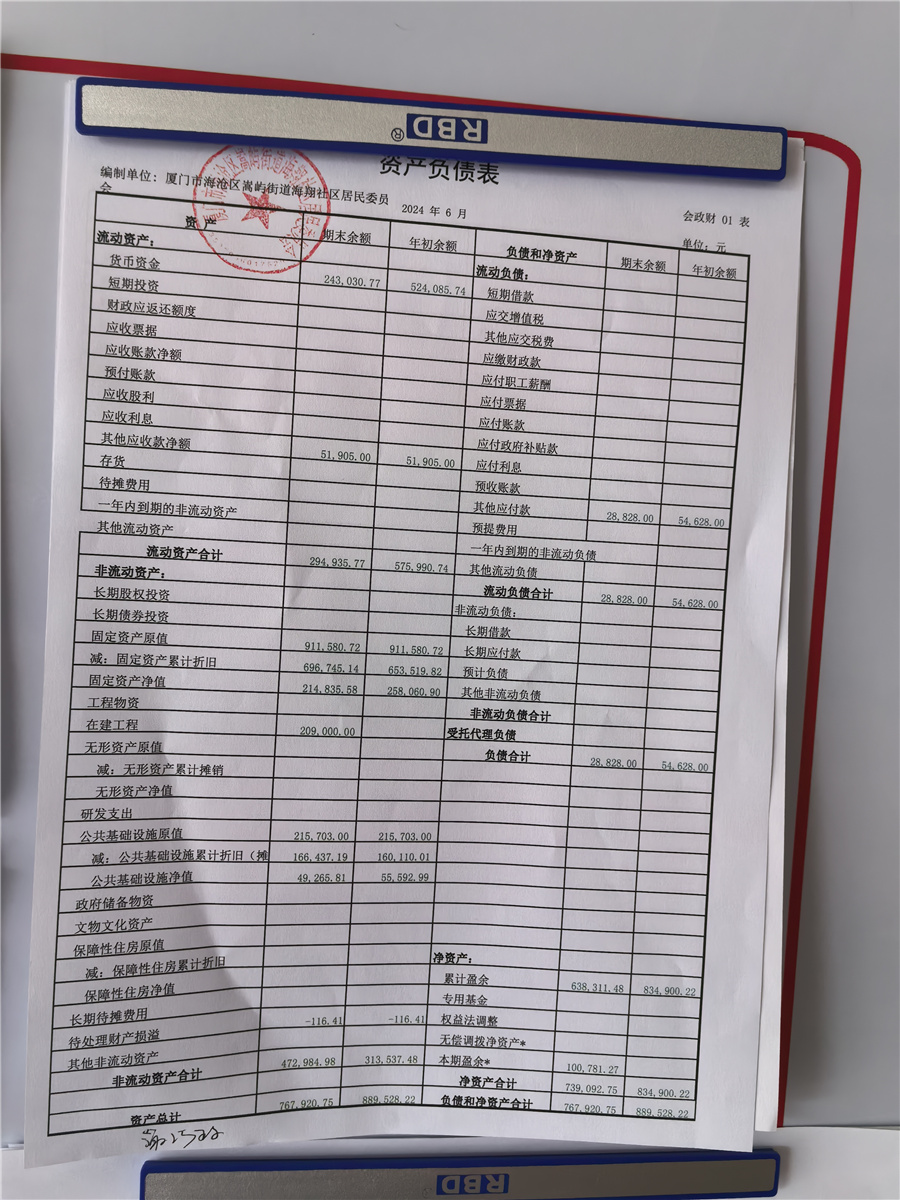 RBD®
资产负债表
编制单位：厦门市海沧区嵩屿街道海翔社区居民委员会
2024 年 6 月
会政财 01 表
单位：元
资 产 期末余额 年初余额 负债和净资产 期末余额 年初余额
流动资产： 流动负债：
货币资金 243,030.77 524,085.74 短期借款
短期投资 应交增值税
财政应返还额度 其他应交税费
应收票据 应缴财政款
应收账款净额 应付职工薪酬
预付账款 应付票据
应收股利 应付账款
应收利息 应付政府补贴款
其他应收款净额 51,905.00 51,905.00 应付利息
存货 预收账款
待摊费用 其他应付款 28,828.00 54,628.00
一年内到期的非流动资产 预提费用
其他流动资产 一年内到期的非流动负债
流动资产合计 294,935.77 575,990.74 其他流动负债
非流动资产： 流动负债合计 28,828.00 54,628.00
长期股权投资 非流动负债：
长期债券投资 长期借款
固定资产原值 911,580.72 911,580.72 长期应付款
减：固定资产累计折旧 696,745.14 653,519.82 预计负债
固定资产净值 214,835.58 258,060.90 其他非流动负债
工程物资 非流动负债合计
在建工程 209,000.00 受托代理负债
无形资产原值 负债合计 28,828.00 54,628.00
减：无形资产累计摊销
无形资产净值
研发支出
公共基础设施原值 215,703.00 215,703.00
减：公共基础设施累计折旧（摊 166,437.19 160,110.01
公共基础设施净值 49,265.81 55,592.99
政府储备物资
文物文化资产
保障性住房原值
减：保障性住房累计折旧 净资产：
保障性住房净值 累计盈余 638,311.48 834,900.22
长期待摊费用 专用基金
待处理财产损溢 -116.41 -116.41 权益法调整
其他非流动资产 无偿调拨净资产*
非流动资产合计 472,984.98 313,537.48 本期盈余* 100,781.27
净资产合计 739,092.75 834,900.22
资产总计 767,920.75 889,528.22 负债和净资产合计 767,920.75 889,528.22
RBD